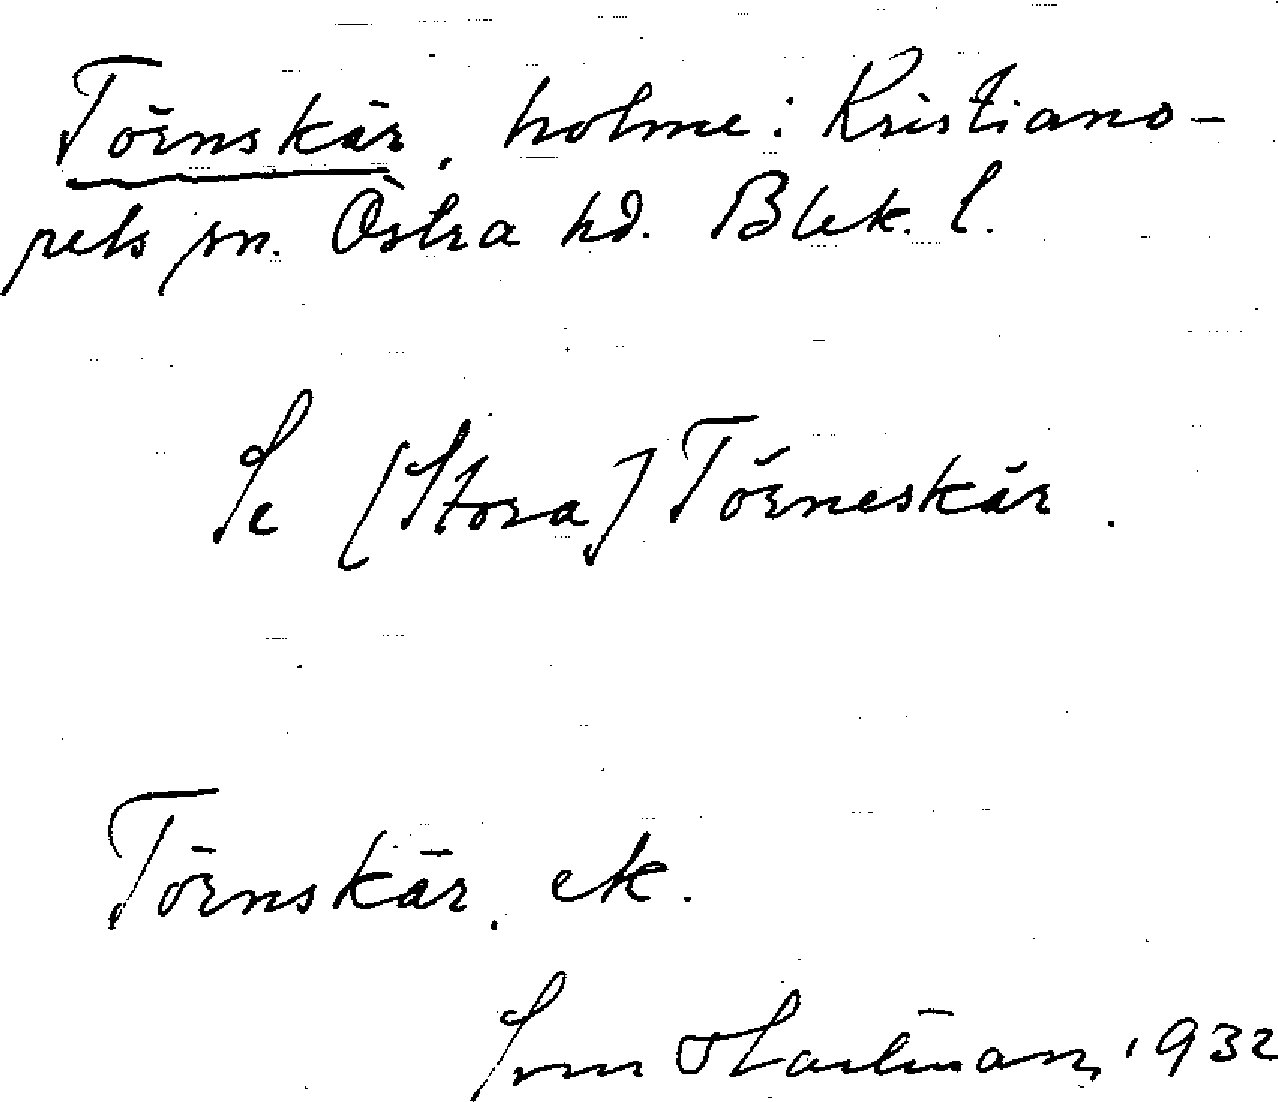 Törnskär, holme: Kristiano-
pels sn. Östra hd. Blek. l.
Se [Stora] Törneskär.
Törnskär, ek.
Sven Hartman, 1932